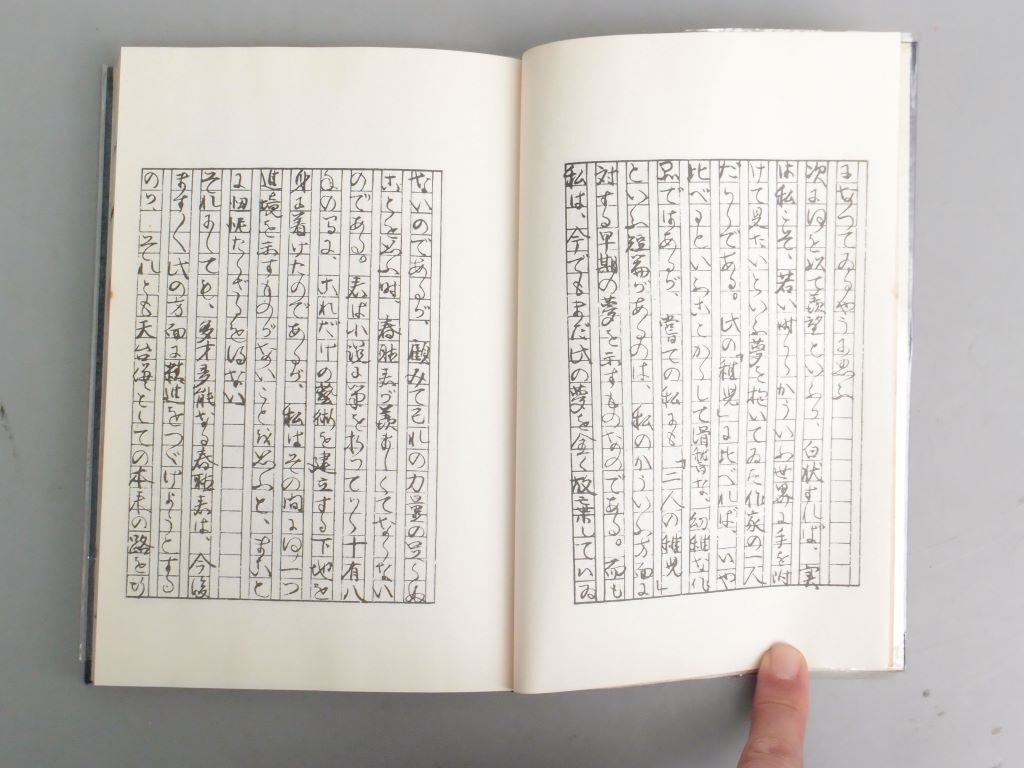 になつてゐるやうに思ふ
次には、白状すれば、実
は私こそ、若い時からかういふ世界に手を附
けて見たいといふ夢を抱いてゐた作家の一人
だからである。氏の「稚児」に比べれば、いや
比べもといふことからして滑稽な、幼稚な
品ではあるが、嘗ての私にも「二人の稚児」
といふ短篇があるのは、私のかういふ方面に
対する早期の夢を示すものなのである。而も
私は、今でもまだ此の夢を全く放棄してゐ
ないのであるが、顧みて己れの力量の足らぬ
ことを思ふ時、春聴君が羨しくてならない
のである。君は小説に筆を執つてから十有八
これだけの藝術を建立する下地を
身に着けたのであるが、私はその間に何一つ
進境を示すものがないことを思ふと、まこと
に忸怩たらざるを得ない
それにしても、多才多能なる春聴君は、今後
ますます此の方面に精進をつづけようとする
のか それとも天台僧としての本来の路を